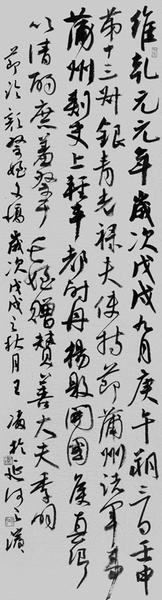 維乾元元年歲次戊戌九月庚午朔三日壬申
第十三叔銀青光祿夫使持節蒲州諸軍事
蒲州刺史上輕車都尉丹楊縣開國侯真卿
以清酌庶羞祭于亡姪贈贊善大夫季明
節臨顏祭姪文稿 歲次戊戌之秋月 王 於延河之濱